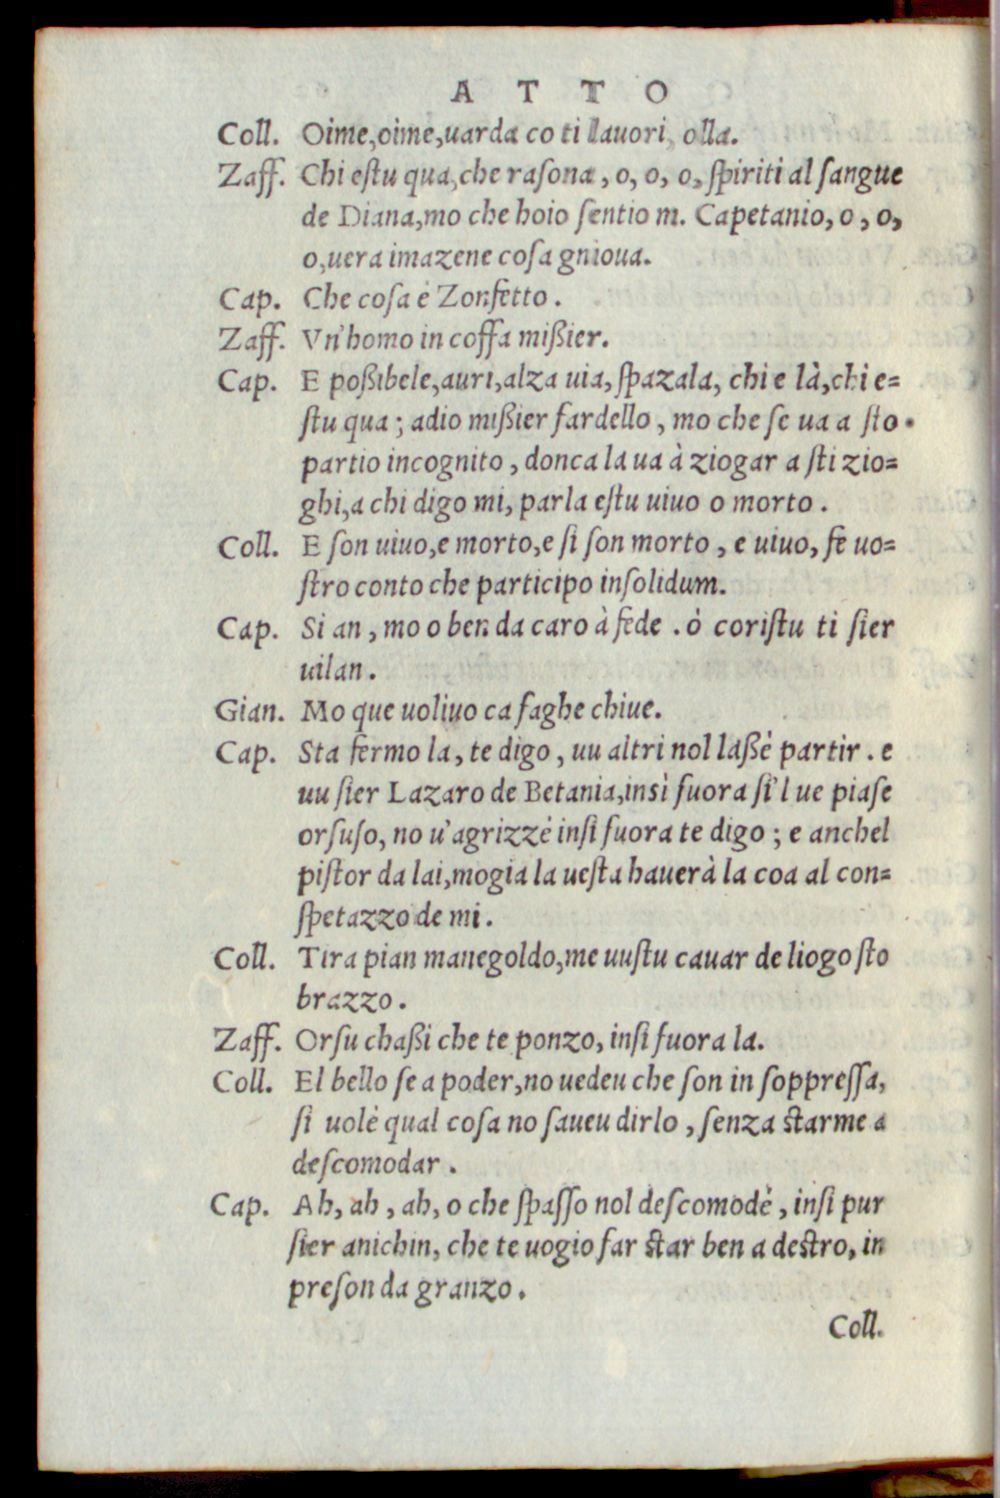 A T T O
Coll. Oime,oime,uarda co ti lauori, olla.
Zaff. Chi estu qua,che rasona, o, o, o, spiriti al sangue
de Diana,mo che hoio sentio m. Capetanio, o, o,
o,uera imazene cosa gnioua.
Cap. Che cosa è Zonfetto.
Zaff. Vn'homo in coffa mißier.
Cap. E poßibele,auri,alza uia,spazala, chi e là,chi e=
stu qua; adio mißier fardello, mo che se ua a sto
partio incognito, donca la ua à ziogar a sti zio=
ghi,a chi digo mi, parla estu uiuo o morto.
Coll. E son uiuo,e morto,e si son morto, e uiuo, fe uo=
stro conto che participo insolidum.
Cap. Si an, mo o ben da caro à fede. ò coristu ti sier
uilan.
Gian. Mo que uoliuo ca faghe chiue.
Cap. Sta fermo la, te digo, uu altri nol laßè partir. e
uu sier Lazaro de Betania,insì fuora si'l ue piase
orsuso, no u'agrizzè insi fuora te digo; e anchel
pistor da lai,mogia la uesta hauerà la coa al con=
spetazzo de mi.
Coll. Tira pian manegoldo,me uustu cauar de liogo sto
brazzo.
Zaff. Orsu chaßi che te ponzo, insi fuora la.
Coll. El bello se a poder,no uedeu che son in soppressa,
si uolè qual cosa no saueu dirlo, senza starme a
descomodar.
Cap. Ah, ah, ah, o che spasso nol descomodè, insi pur
sier anichin, che te uogio far star ben a destro, in
preson da granzo.
Coll.